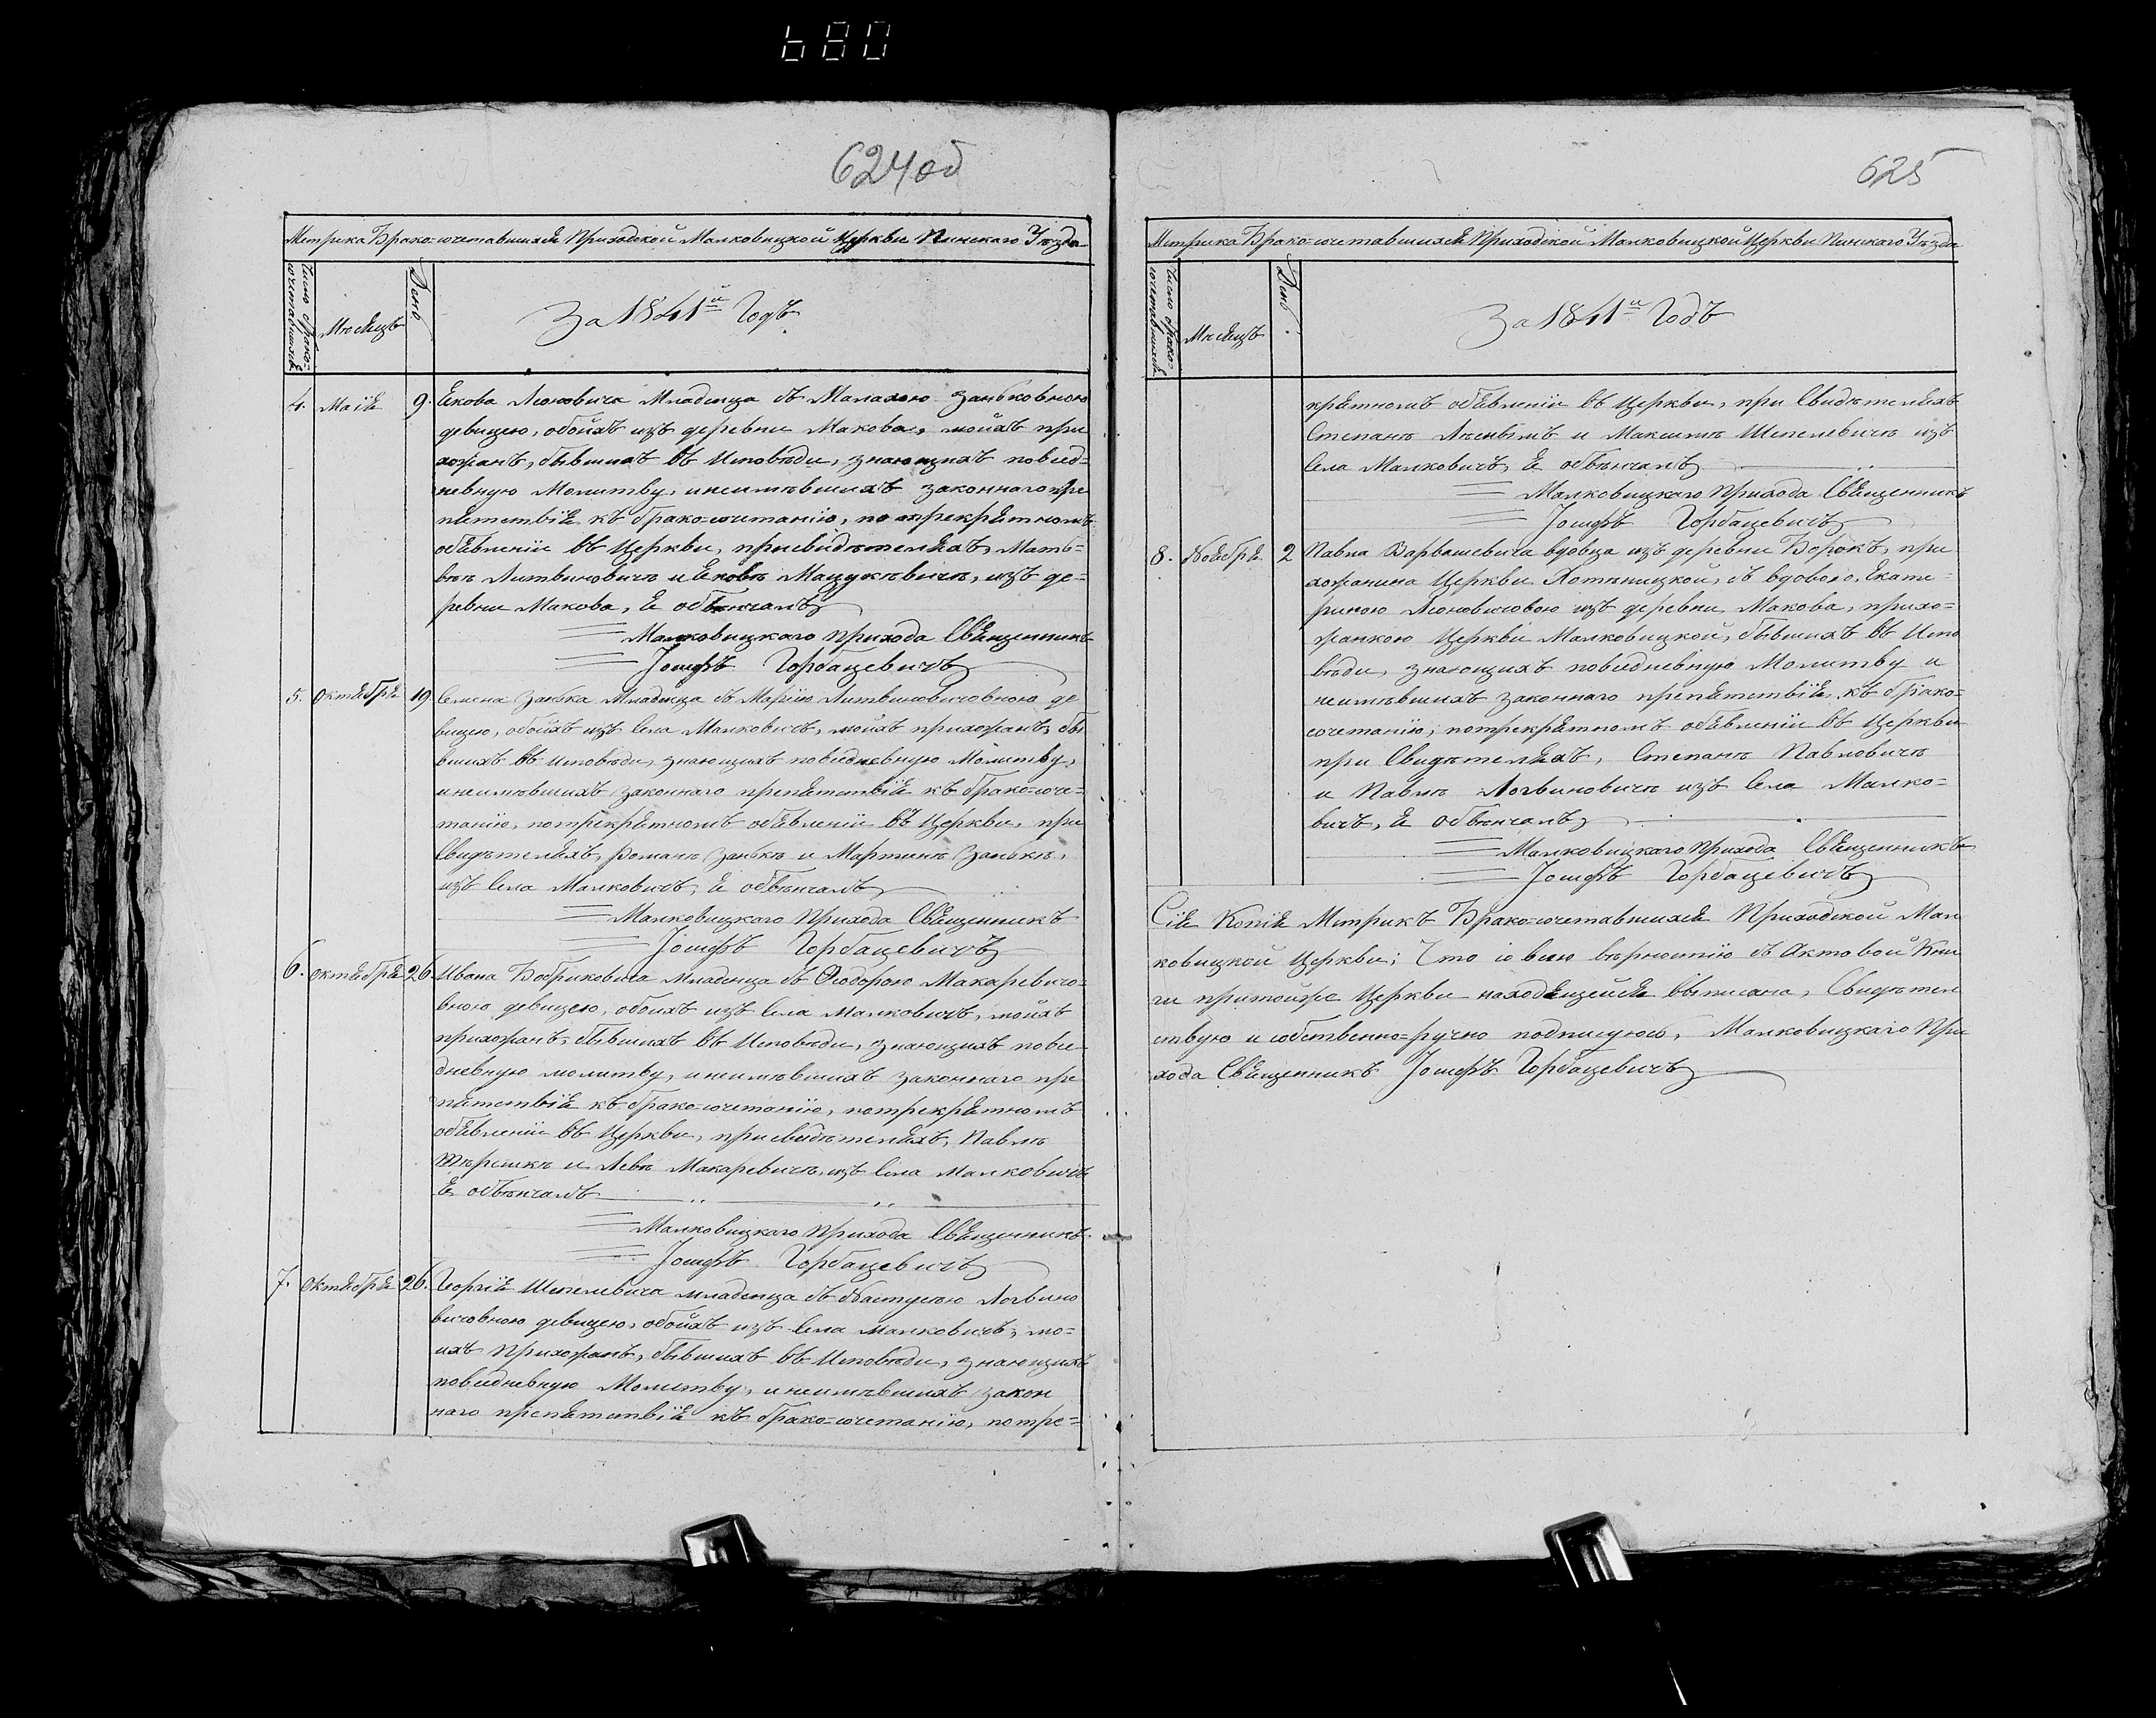 680
624 об
Метрика Брако-сочетавшихся Приходской Малковицкой Церкви Пинскаго Уѣзда
Число брако-сочетавшихся
Мѣсяцъ
День
За 1841й Годъ
4. Маія 9. Якова Леоновича Младенца съ Маланою Занковною
девицею, обойхъ изъ деревни Макова, мойхъ при
хожанъ, бывшихъ въ Исповѣди, знающихъ повсед=
невную Молитву, инеимѣвшихъ законнаго пре
пятствія къ брако-сочетанію, по трекрятномъ
объявленіи въ Церкви, присвидѣтеляхъ, Мать=
вѣѣ Литвиновичѣ и Яковѣ Мацукѣвичѣ, изъ де=
ревни Макова, Я обвѣнчалъ
Малковицкаго Прихода Священникъ
Іосифъ Горбацевичъ
5. Октября 19. Семена Занька Младенца съ Марією Литвиновичовною де
вицею, обойхъ изъ Села Малковичъ, мойхъ прихожанъ, бы
вшихъ въ Исповѣди, знающихъ повседневную Молитву,
инеимѣвшихъ законнаго препятствія къ брако-соче=
танію, потрекрятномъ объявленіи въ Церкви, при
Свидѣтеляхъ, Романѣ Занькѣ и Мартинѣ Занькѣ,
изъ Села Малковичъ, Я обвѣнчалъ
Малковицкаго Прихода Священникъ
Іосифъ Горбацевичъ
6. Октября 26. Ивана Бобриковича младенца съ Ѳеодорою Макаревичо=
вною девицею, обоихъ изъ Села Малковичъ, мойхъ
прихожанъ, бывшихъ въ Исповѣди, знающихъ повсе
дневную молитву, инеимѣвшихъ законнаго пре
пятствія къ брако-сочетанію, потрекрятномъ
объявленіи въ Церкви, присвидѣтеляхъ, Павлѣ
и Левѣ Макаревичѣ, изъ Села Малковичъ
Я обвѣнчалъ
Малковицкаго Прихода Священникъ
Іосифъ Горбацевичъ
7. Октября 26. Георгія Шепелевича младенца съ Настусею Логвино
вичовною девицею, обойхъ изъ Села Малковичъ, мо=
ихъ прихожанъ, бывшихъ въ Исповѣди, знающихъ
повседневную Молитву, инеимѣвшихъ закон
наго препятствія къ брако-сочетанію, потре=
625
Метрика Брако-сочетавшихся Приходской Малковицкой Церкви Пинскаго Уѣзда
Число брако-сочетавшихся
Мѣсяцъ
День
За 1841й Годъ
крятномъ объявленіи въ Церкви, при Свидѣтеляхъ
Степанѣ и Максимѣ Шепелевичѣ изъ
Села Малковичъ, Я обвѣнчалъ
Малковицкаго Прихода Священникъ
Іосифъ Горбацевичъ
8. Ноября 2 Павла Варвашевича вдовца изъ деревни Борокъ, при
хожанина Церкви Хотыницкой, съ вдовою, Екате=
риною Леоновичовою изъ деревни Макова, прихо=
жанкою Церкви Малковицкой, бывшихъ въ Испо
вѣди, знающихъ повседневную Молитву и
неимѣвшихъ законнаго препятствія къ брако=
сочетанію, потрекрятномъ объявленіи въ Церкви
при Свидѣтеляхъ, Степанѣ Павловичѣ
и Павлѣ Логвиновичѣ изъ Села Малко=
вичъ, Я обвѣнчалъ
Малковицкаго Прихода Священникъ
Іосифъ Горбацевичъ
Сія Копія Метрикъ Брако-сочетавшихся Приходской Мал
ковицкой Церкви; Что со всею вѣрностію съ Актовой Кни
ги притойже Церкви находящейся выписана, Свидѣтел
ствую и собственно=ручно подписуюсь, Малковицкаго При
хода Священникъ Іосифъ Горбацевичъ